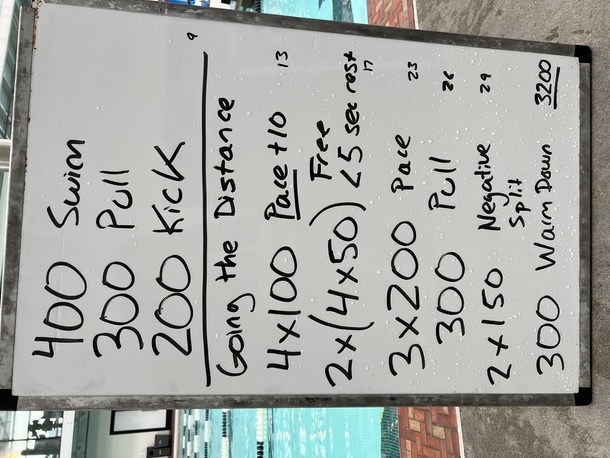 400 Swim
300 Pull
200 Kick 9
Going the Distance
4x100 Pace +10 13
2x(4x50) Free <5 sec rest 17
3x200 Pace 23
300 Pull 26
2x150 Negative Split 29
300 Warm Down 3200